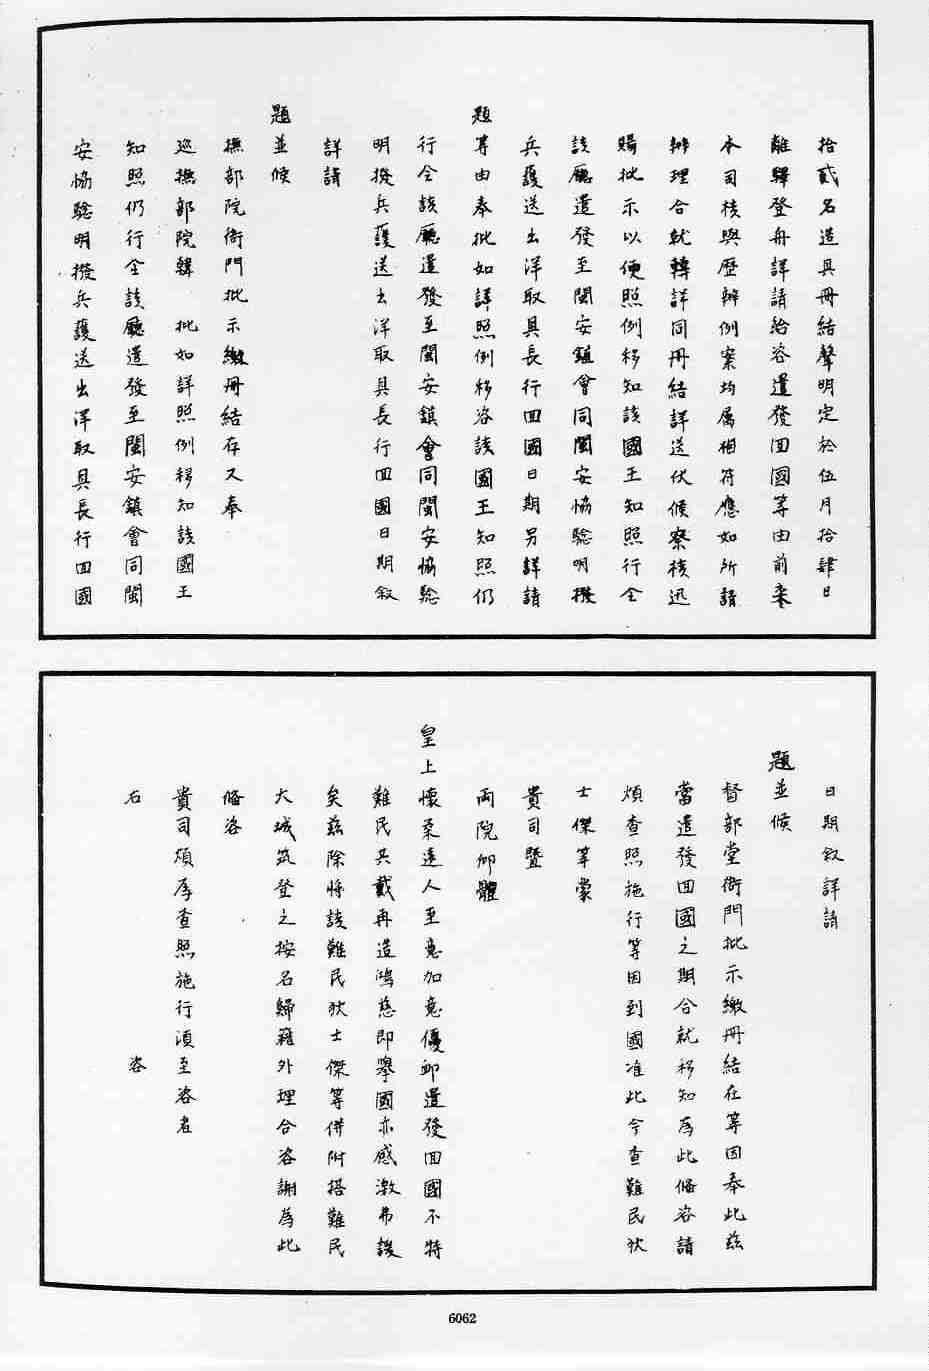 拾貳名造具冊結聲明定於伍月拾肆日
離驛登舟詳請給咨遣發回國等由前來
本司核與歷辦例案均属相符應如所請
辦理合就轉詳同冊結詳送伏候察核迅
賜批示以便照例移知該國王知照行令
該廳遣發至閩安鎮會同閩安協驗明撥
兵護送出洋取具長行回國日期另詳請
題等由奉批如詳照例移咨該國王知照仍
行令該廳遣發至閩安鎮會同閩安協驗
明撥兵護送出洋取具長行回國日期叙
詳請
題並候
撫部院衙門批示繳冊結存又奉
巡撫部院韓 批如詳照例移知該國王
知照仍行令該廳遣發至閩安鎮會同閩
安協驗明撥兵護送出洋取具長行回國
日期叙詳請
題並候
督部堂衙門批示繳冊結在等因奉此茲
當遣發回國之期合就移知為此備咨請
煩查照施行等因到國准此今查難民狄
士傑等蒙
貴司暨
兩院仰體
皇上懷柔遠人至意加意優卹遣發回國不特
難民共戴再造鴻慈即擧國亦感激弗諼
矣茲除将該難民狄士傑等併附搭難民
大城筑登之按名歸籍外理合咨謝為此
備咨
貴司煩為查照施行須至咨者
右 咨
6062